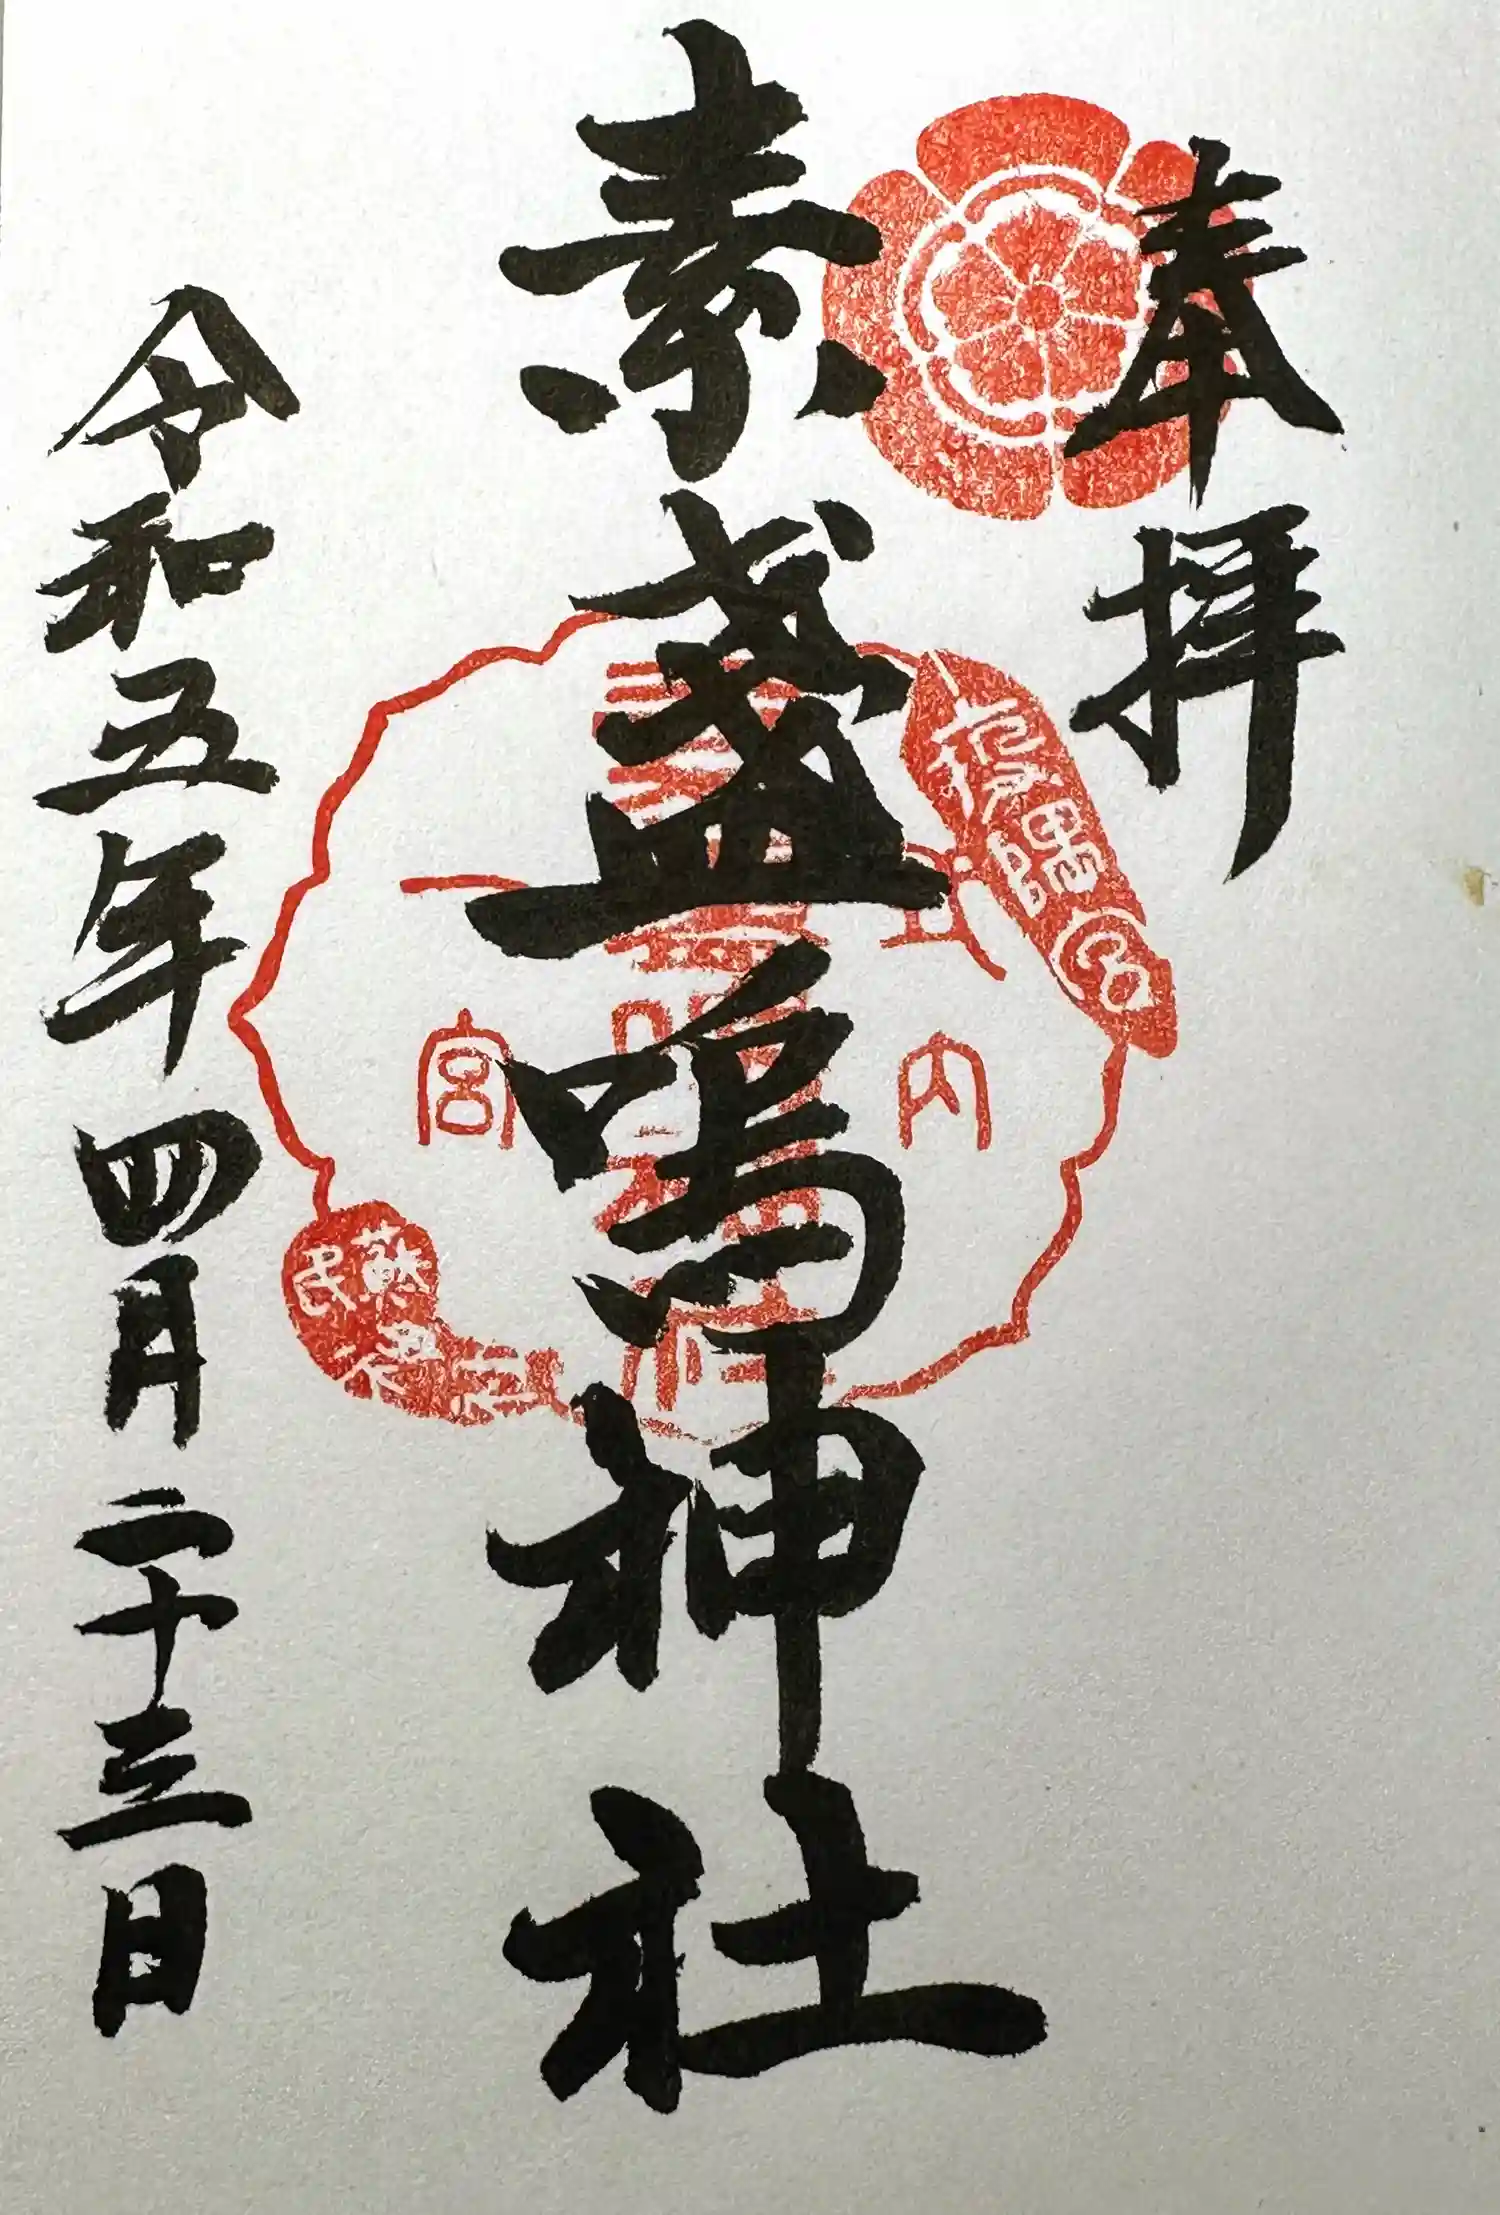 奉拝
素盞鳴神社
令和五年四月二十三日
内
宮
蘇民